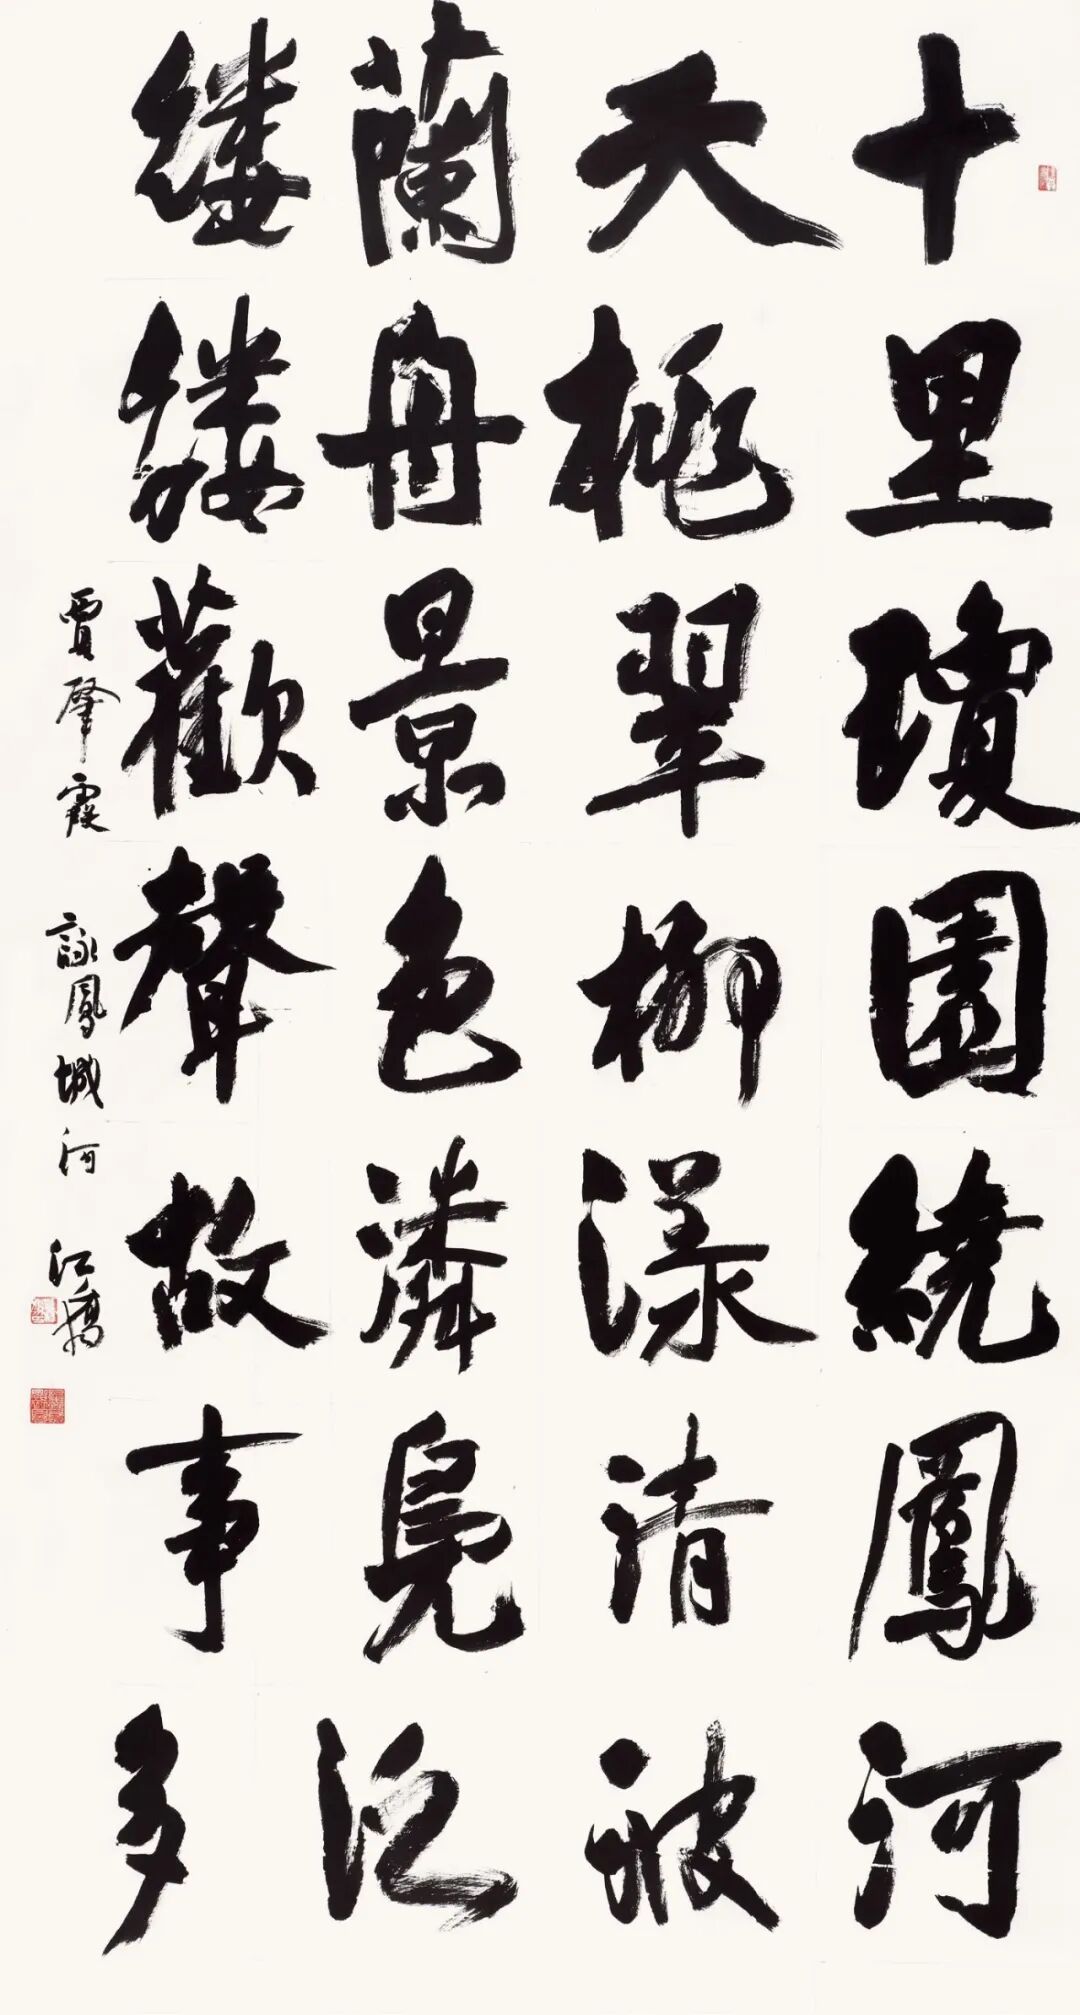 十里瓊園繞鳳河
夭桃翠柳漾清波
蘭舟景色潾鳧泛
縷縷歡聲故事多
賈肇霞 詠鳳城河 江